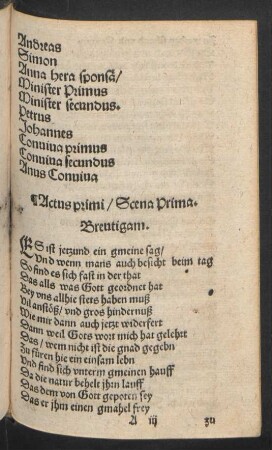 Andreas
Simon
Anna hera sponsã/
Minister Primus
Minister secundus.
Petrus
Johannes
Conviva primus
Conviva secundus
Anus Conviva
¶Actus primi/ Scena Prima.
Breutigam.
ES ist jetzund ein gmeine sag/
Vnd wenn mans auch besicht beim tag
So find es sich fast in der that
Das alls was Gott geordnet hat
Bey vns allhie stets haben muß
Vil anstöß/ vnd gros hindernuß
Wie mir dann auch jetz widerfert
Dann weil Gots wort mich hat gelehrt
Das/ wem nicht ist die gnad gegebn
Zu füren hie ein einsam lebn
Vnd find sich vnterm gmeinen hauff
Da die natur behelt jhrn lauff
Das dem von Gott gepoten sey
Das er jhm einen gmahel frey
A iij zu